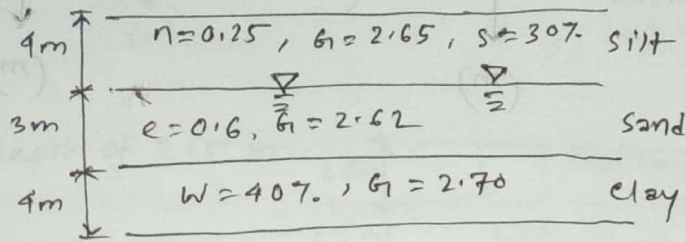 4m n=0.25, G=2.65, s=30% silt
3m e=0.6, G=2.62 sand
4m W=40%, G=2.70 clay